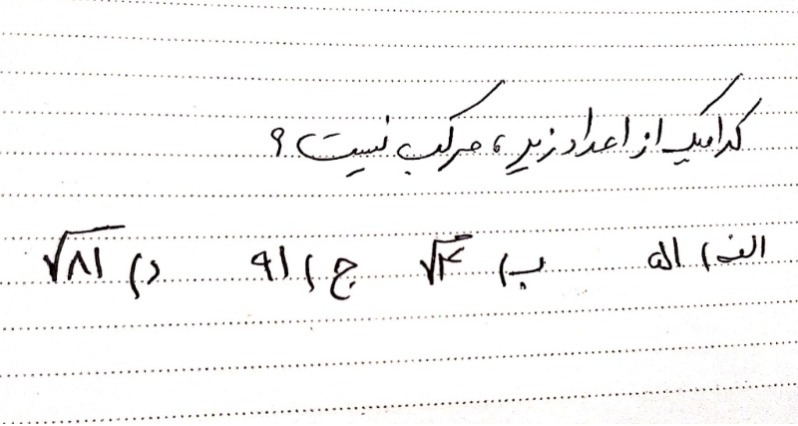 کدامیک از اعداد زیر، مرکب نیست؟
الف) ۵۱ ب) √۴ ج) ۹۱ د) √۸۱